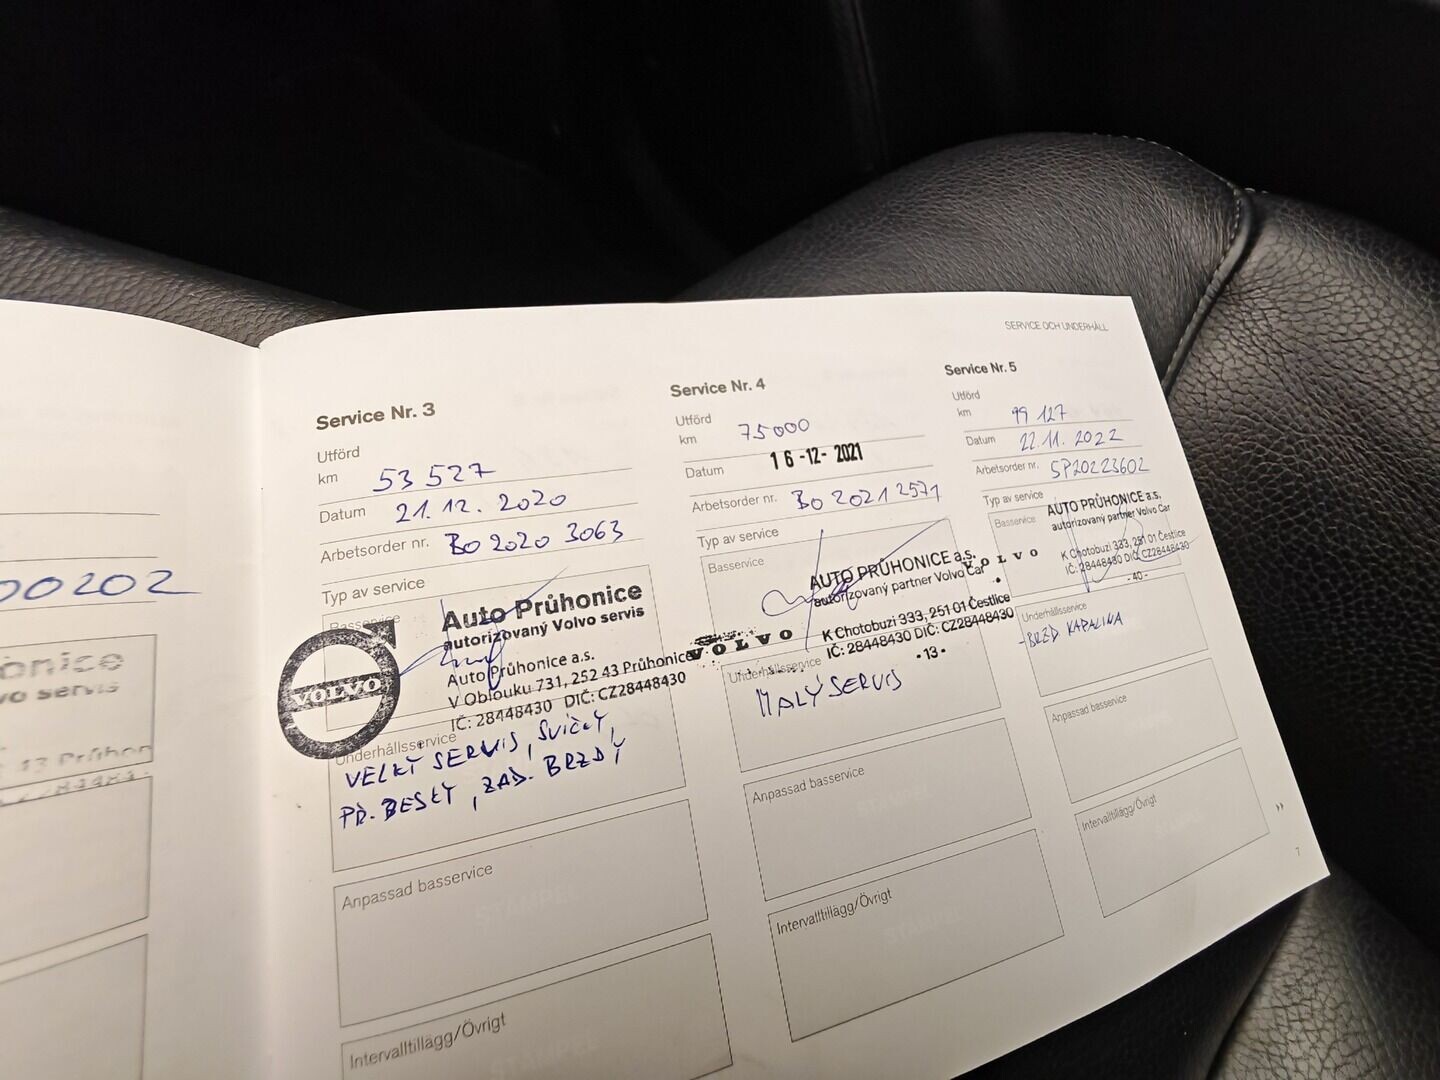 SERVICE OCH UNDERHÅLL
00202
Service Nr. 3
Utförd
km 53 527
Datum 21.12.2020
Arbetsorder nr. BO 2020 3063
Typ av service
Basservice
VOLVO
Auto Průhonice
autorizovaný Volvo servis
Auto Průhonice a.s.
V Oblouku 731, 252 43 Průhonice
IČ: 28448430 DIČ: CZ28448430
Underhållsservice
VELKÝ SERVIS, SVÍČKY,
PŘ. DESKY, ZAD. BRZDY
Anpassad basservice
STÄMPEL
Intervalltillägg/Övrigt
STÄMPEL
Service Nr. 4
Utförd
km 75000
Datum 16-12-2021
Arbetsorder nr. BO 2021 2571
Typ av service
Basservice
VOLVO
AUTO PRŮHONICE a.s.
autorizovaný partner Volvo Car
K Chotobuzi 333, 251 01 Čestlice
IČ: 28448430 DIČ: CZ28448430
- 13 -
Underhållsservice
MALÝ SERVIS
Anpassad basservice
Intervalltillägg/Övrigt
STÄMPEL
Service Nr. 5
Utförd
km 99 127
Datum 22.11.2022
Arbetsorder nr. SP20223602
Typ av service
Basservice
VOLVO
AUTO PRŮHONICE a.s.
autorizovaný partner Volvo Car
K Chotobuzi 333, 251 01 Čestlice
IČ: 28448430 DIČ: CZ28448430
- 40 -
Underhållsservice
- BRZD KAPALINA
Anpassad basservice
Intervalltillägg/Övrigt
7